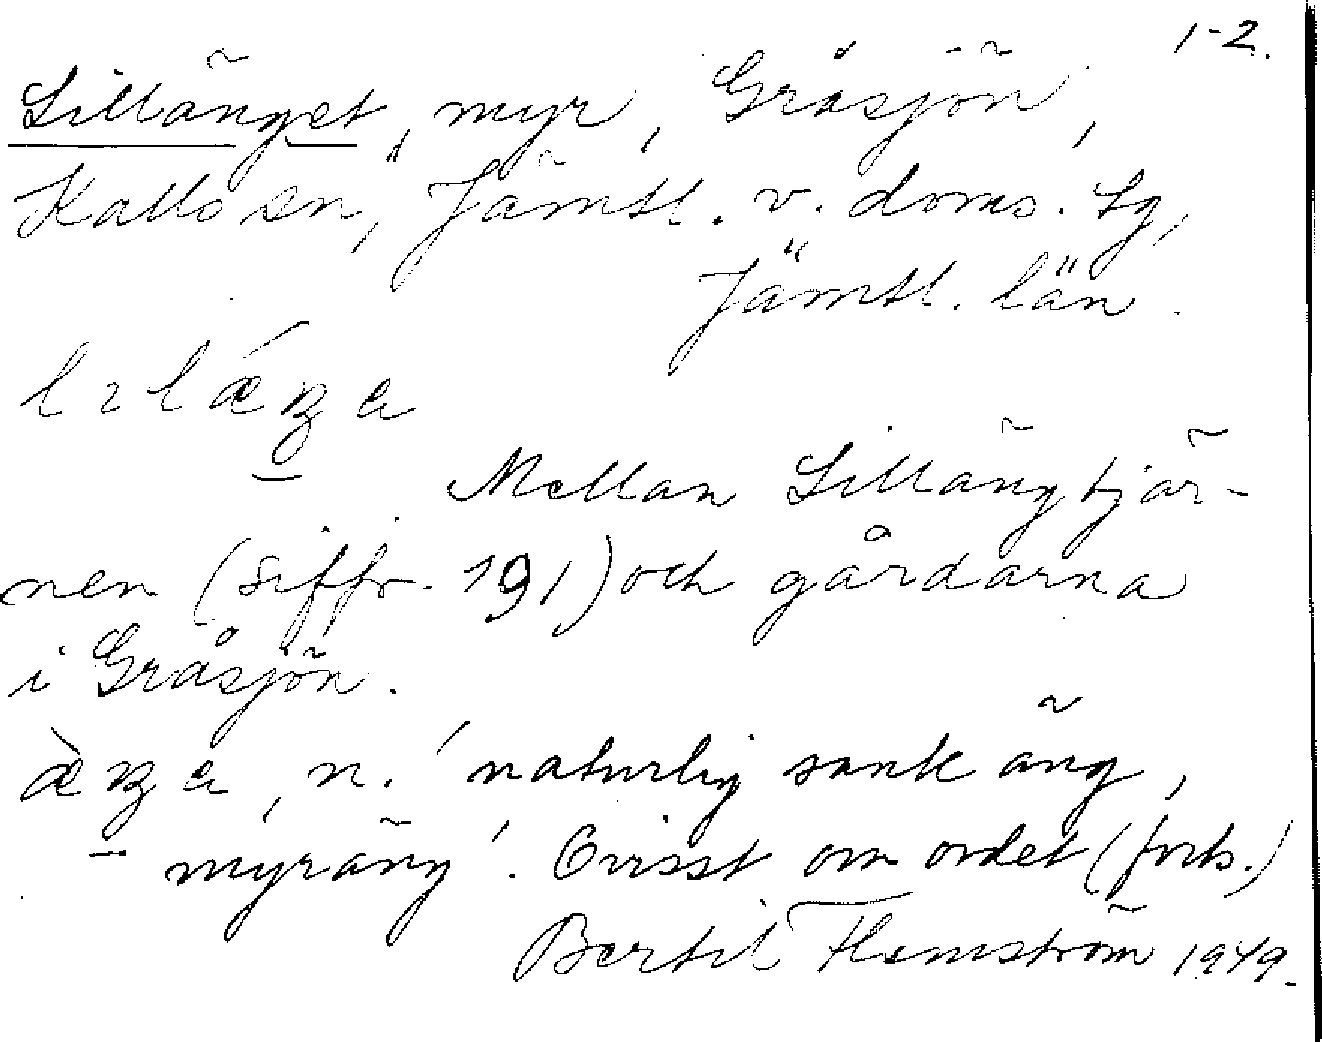 1-2.
Lillänget, myr, Gråsjön,
Kalls sn, Jämtl. v. doms. lg,
Jämtl. län.
Mellan Lillängtjär-
nen (siffr. 191) och gårdarna
i Gråsjön.
n. 'naturlig sank äng,
myräng'. Ovisst om ordet (forts.)
Bertil Flemström 1949.